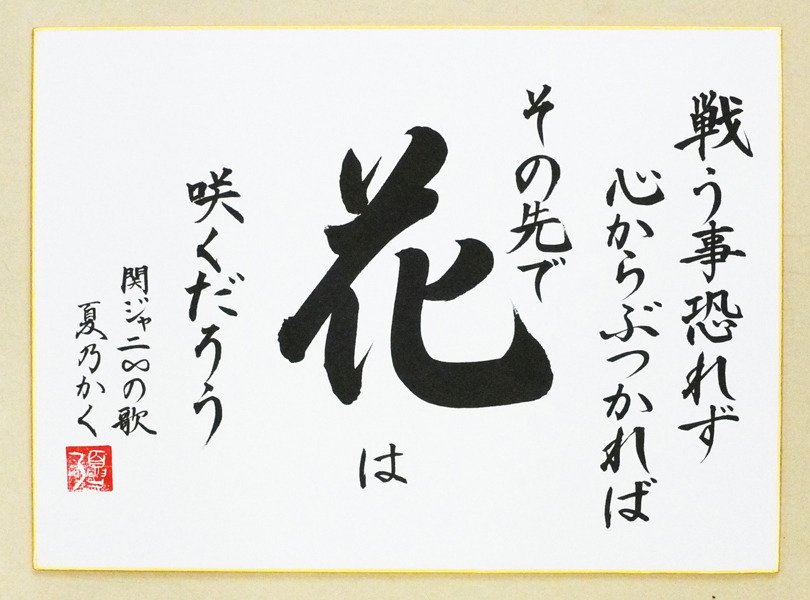 戦う事恐れず
心からぶつかれば
その先で
花
は
咲くだろう
関ジャニ∞の歌
夏乃かく